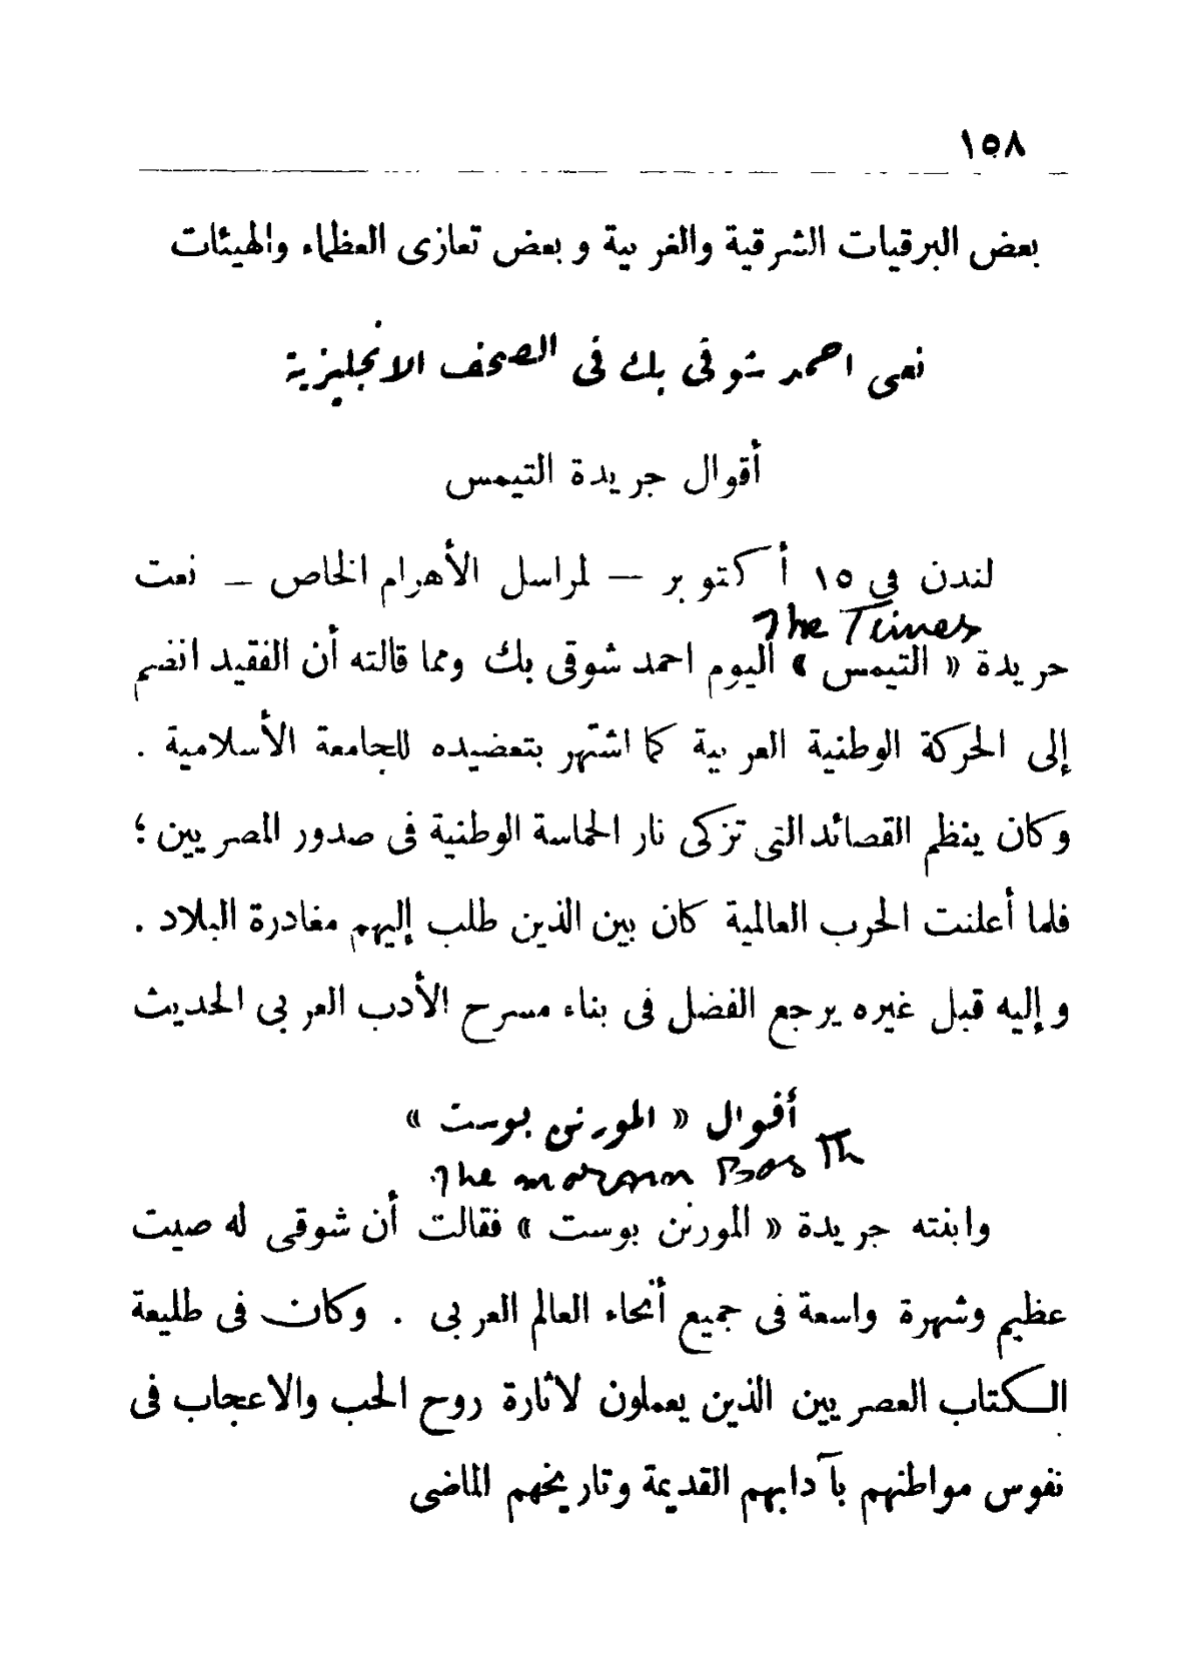 ١٥٨
بعض البرقيات الشرقية والغربية وبعض تعازى العظماء والهيئات
نعى احمد شوقى بك فى الصحف الانجليزية
أقوال جريدة التيمس
لندن في ١٥ أكتوبر — لمراسل الأهرام الخاص — نعت
The Times
جريدة « التيمس » اليوم احمد شوقى بك ومما قالته أن الفقيد انضم
إلى الحركة الوطنية العربية كما اشتهر بتعضيده للجامعة الأسلامية .
وكان ينظم القصائد التى تزكى نار الحماسة الوطنية فى صدور المصريين ؛
فلما أعلنت الحرب العالمية كان بين الذين طلب إليهم مغادرة البلاد .
وإليه قبل غيره يرجع الفضل فى بناء مسرح الأدب العربى الحديث
أقوال « المورنن بوست »
The
وابنته جريدة « المورنن بوست » فقالت أن شوقى له صيت
عظيم وشهرة واسعة فى جميع أنحاء العالم العربى . وكان فى طليعة
الكتاب العصريين الذين يعملون لاثارة روح الحب والاعجاب فى
نفوس مواطنهم بآدابهم القديمة وتاريخهم الماضى